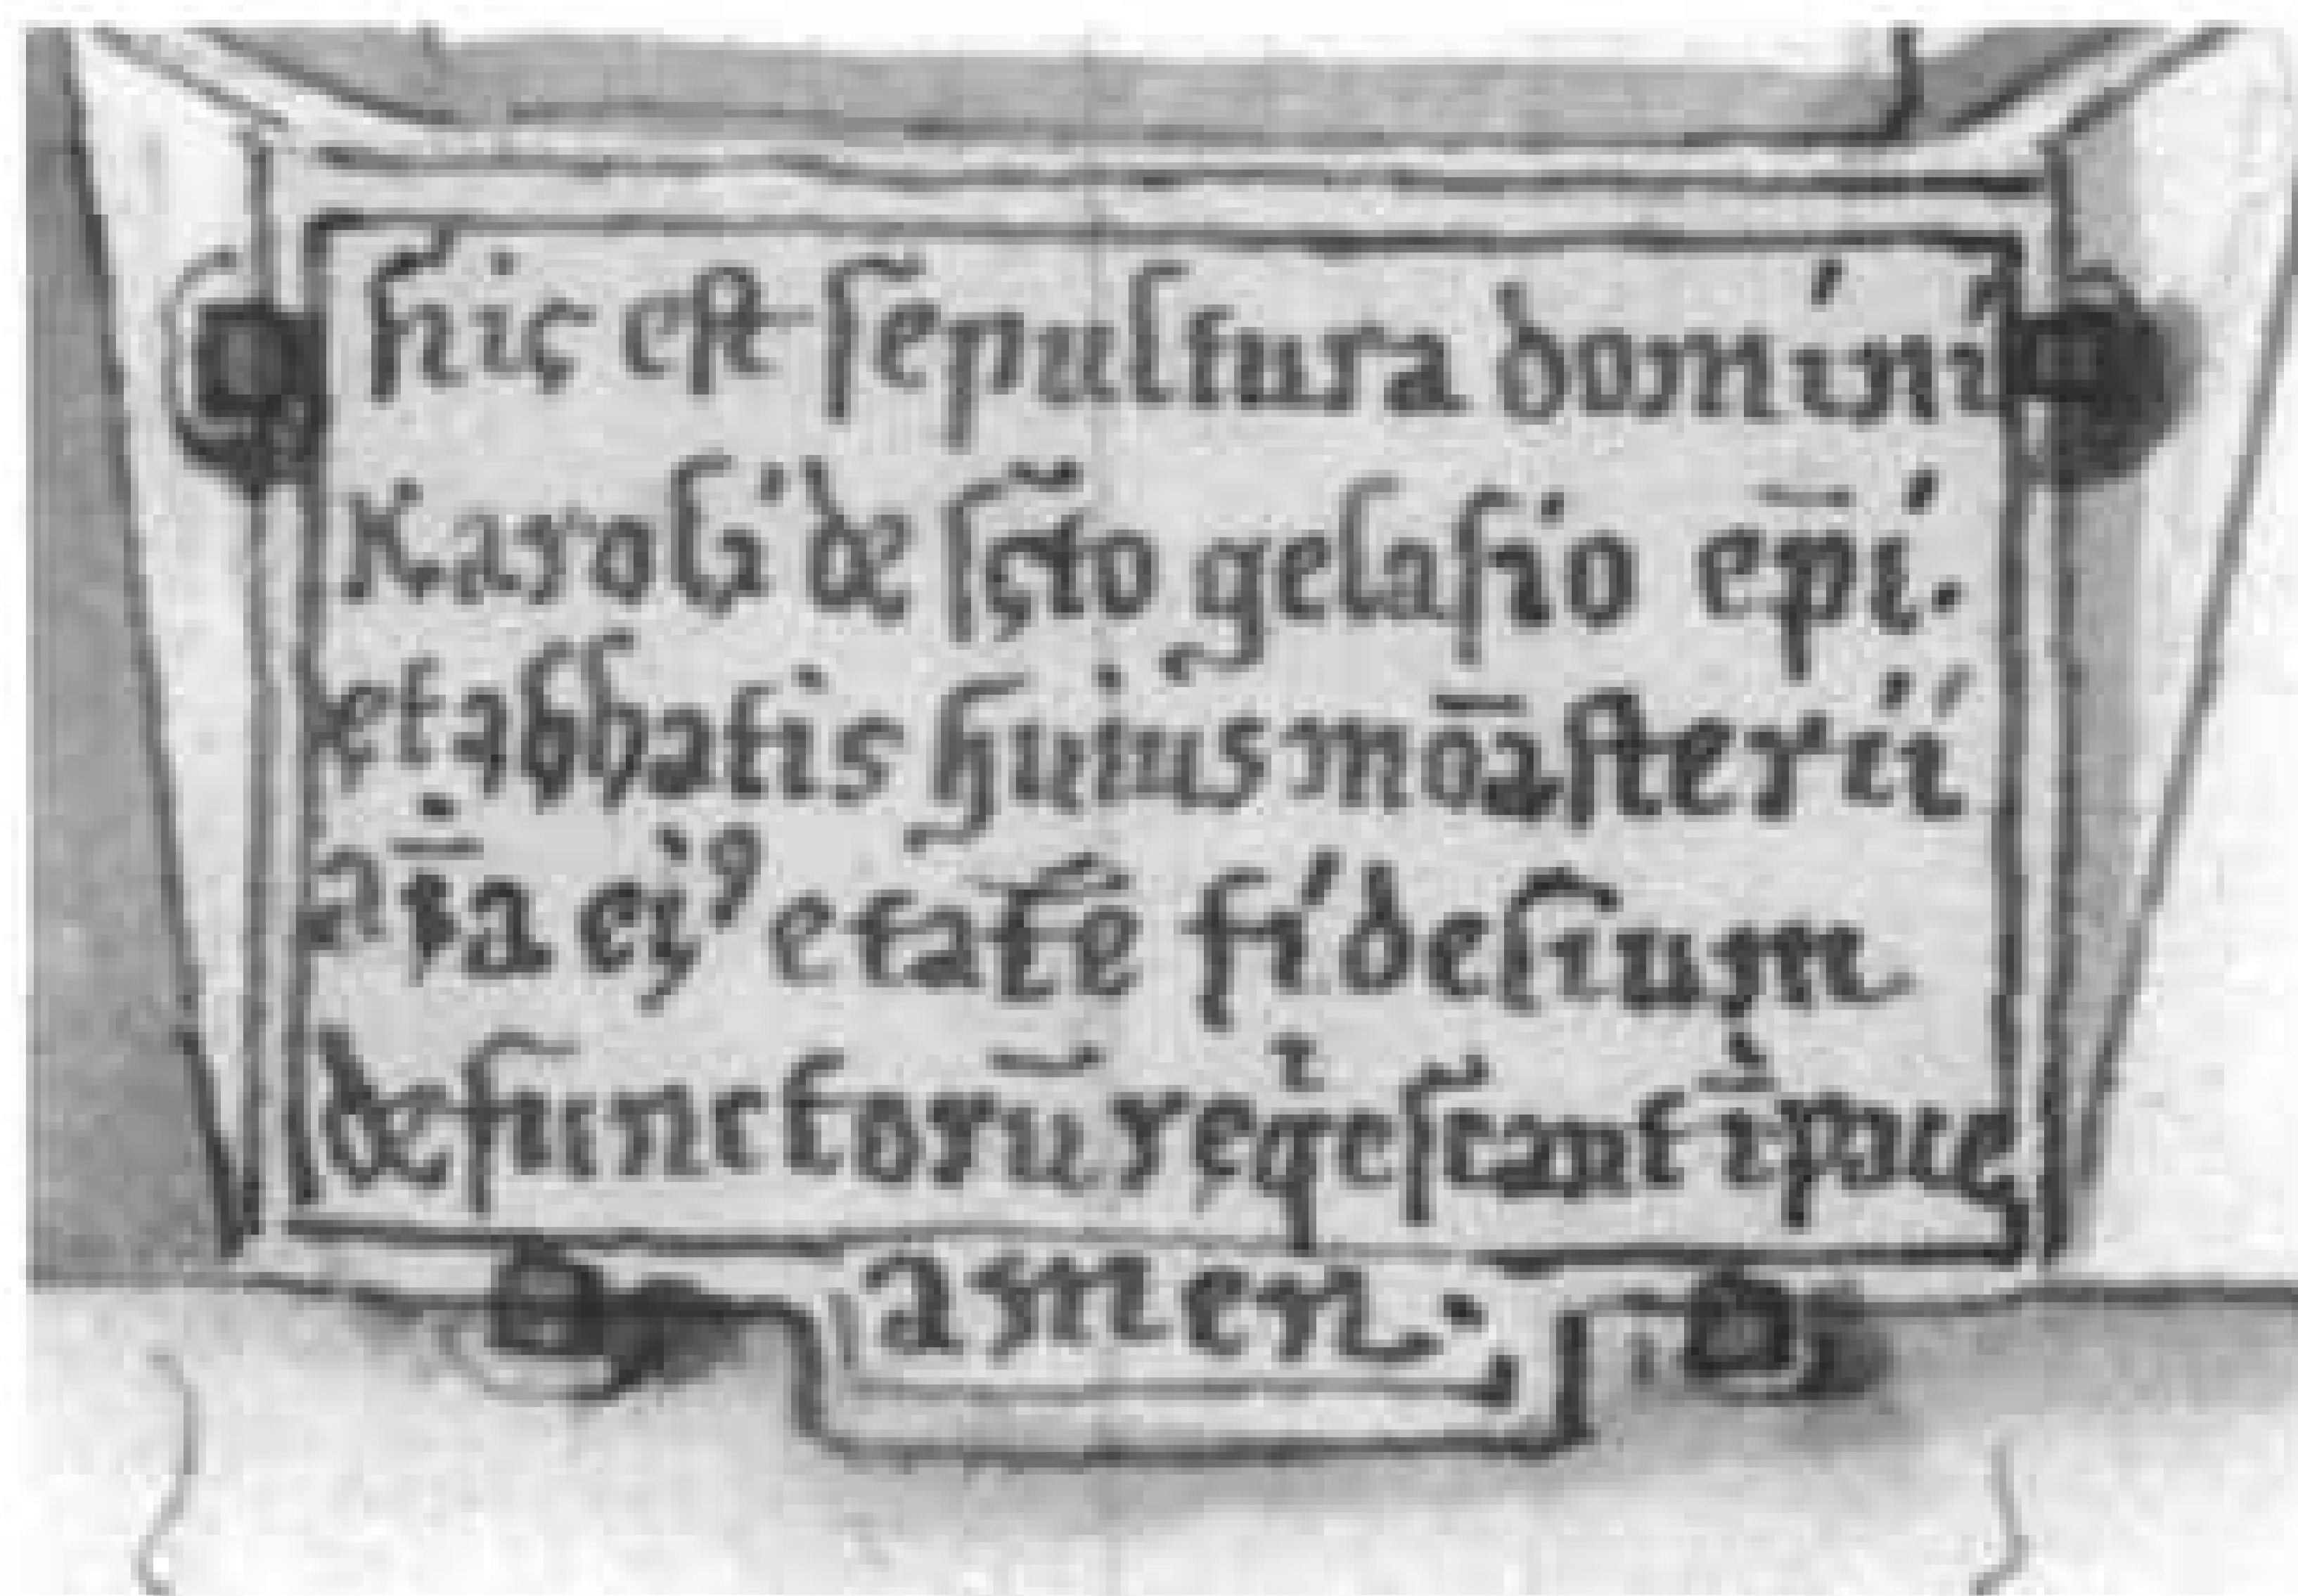 hic est sepultura domini
Karoli de sc̃to gelasio ep̄i.
et abbatis huius mōasterii
aīa ejꝰ et atē fidelium
defunctorū reqͥescant ī pace
amen.